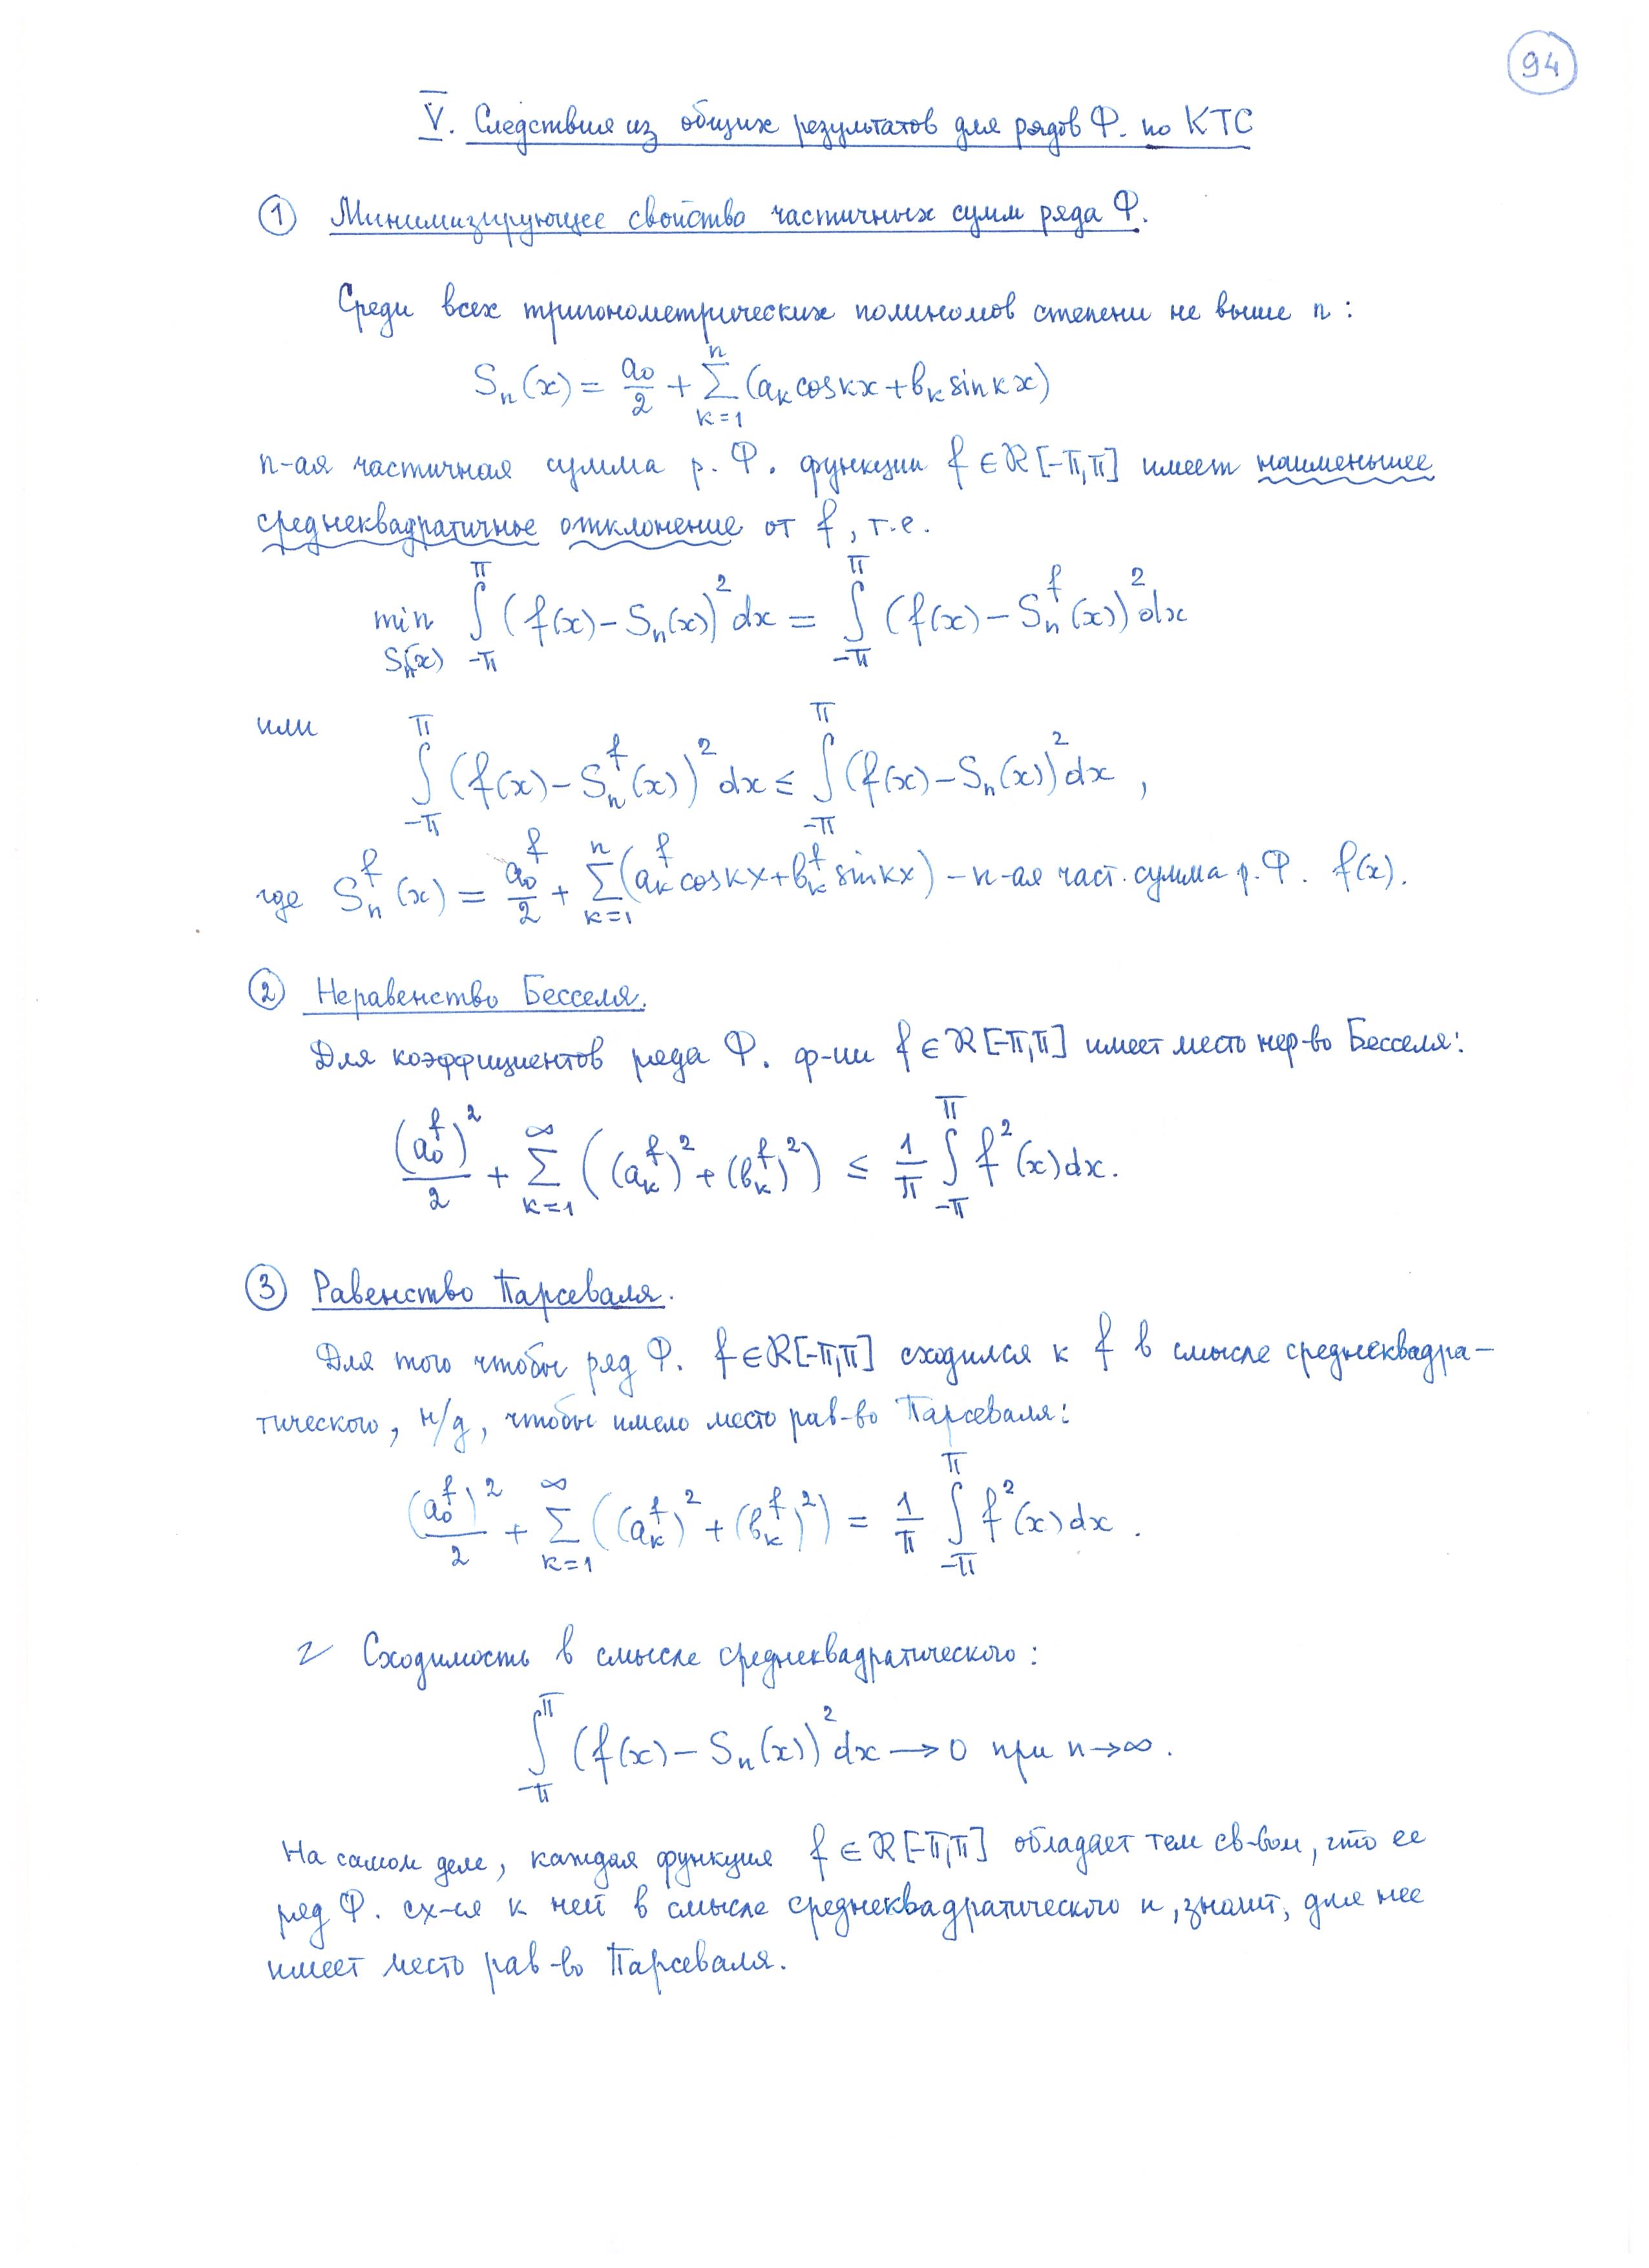 94
V. Следствия из общих результатов для рядов Ф. по КТС
① Минимизирующее свойство частичных сумм ряда Ф.
Среди всех тригонометрических полиномов степени не выше n:
Sₙ(x) = a₀/2 + ∑_{k=1}^{n} (aₖ cos kx + bₖ sin kx)
n-ая частичная сумма р. Ф. функции f ∈ ℛ[-π,π] имеет наименьшее
среднеквадратичное отклонение от f, т.е.
min_{Sₙ(x)} ∫_{-π}^{π} (f(x) - Sₙ(x))² dx = ∫_{-π}^{π} (f(x) - Sₙ^f(x))² dx
или
∫_{-π}^{π} (f(x) - Sₙ^f(x))² dx ≤ ∫_{-π}^{π} (f(x) - Sₙ(x))² dx ,
где Sₙ^f(x) = a₀^f/2 + ∑_{k=1}^{n} (aₖ^f cos kx + bₖ^f sin kx) – n-ая част. сумма р. Ф. f(x).
② Неравенство Бесселя.
Для коэффициентов ряда Ф. ф-ии f ∈ ℛ[-π,π] имеет место нер-во Бесселя:
(a₀^f)²/2 + ∑_{k=1}^{∞} ((aₖ^f)² + (bₖ^f)²) ≤ 1/π ∫_{-π}^{π} f²(x) dx.
③ Равенство Парсеваля.
Для того чтобы ряд Ф. f ∈ ℛ[-π,π] сходился к f в смысле среднеквадра-
тического, н/д, чтобы имело место рав-во Парсеваля:
(a₀^f)²/2 + ∑_{k=1}^{∞} ((aₖ^f)² + (bₖ^f)²) = 1/π ∫_{-π}^{π} f²(x) dx .
Сходимость в смысле среднеквадратического:
∫_{-π}^{π} (f(x) - Sₙ(x))² dx → 0 при n → ∞ .
На самом деле, каждая функция f ∈ ℛ[-π,π] обладает тем св-вом, что ее
ряд Ф. сх-ся к ней в смысле среднеквадратического и, значит, для нее
имеет место рав-во Парсеваля.